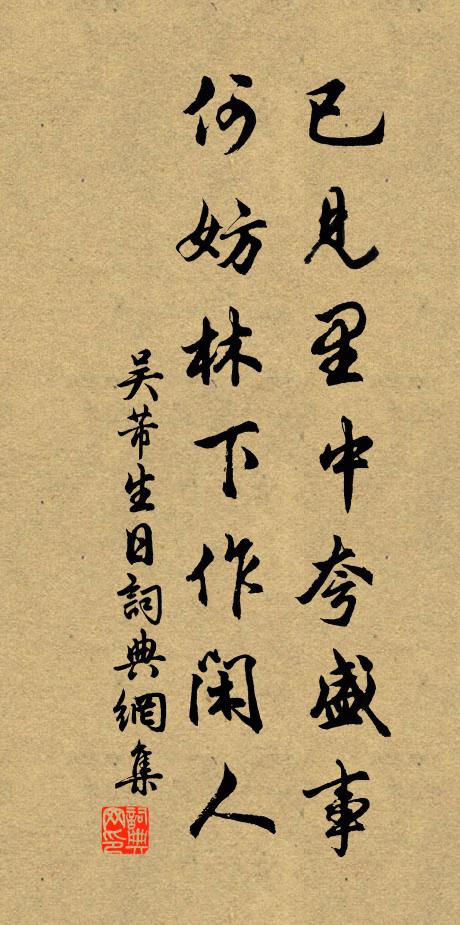 已見里中夸盛事
何妨林下作閑人
吴芾生日詞典網集
詞典
网印